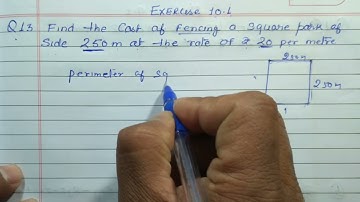 EXERCISE 10.1
Q13. Find the Cost of Fencing a Square park of
Side 250 m at the rate of ₹ 20 per metre
250m
Perimeter of Sq
250m